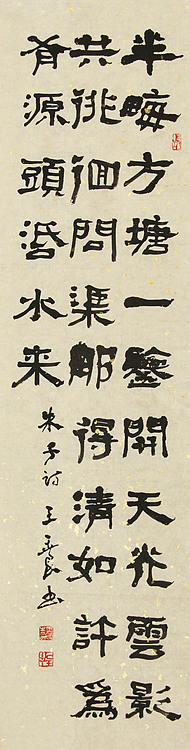 半畮方塘一鑒開天光雲影
共徘徊問渠那得清如許為
有源頭活水来
朱子詩 王